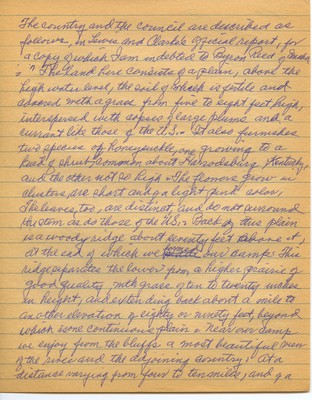 The country and the council are described as
follows, in Lewis and Clark's official report, for
a copy of which I am indebted to Byron Reed,
" The land here consists of a plain, above the
high water level, the soil of which is fertile and
covered with a grass from five to eight feet high,
interspersed with copses of large plums and a
currant like those of the U.S. It also furnishes
two species of honeysuckle, one growing to a
kind of shrub common about Harrodsburg Kentucky,
and the other not so high. The flowers grow in
clusters, are short and of a light pink color,
The leaves, too, are distinct and do not surround
the stem as do those of the U.S. Back of this plain
is a woody ridge about seventy feet above it,
at the end of which we formed our camp. This
ridge separates the lower from a higher prairie of
good quality, with grass of ten to twenty inches
in height, and extending back about a mile to
another elevation of eighty or ninety feet, beyond
which is one continuous plain. Near our camp
we enjoy from the bluffs a most beautiful view
of the river and the adjoining country; At a
distance varying from four to ten miles, and of a